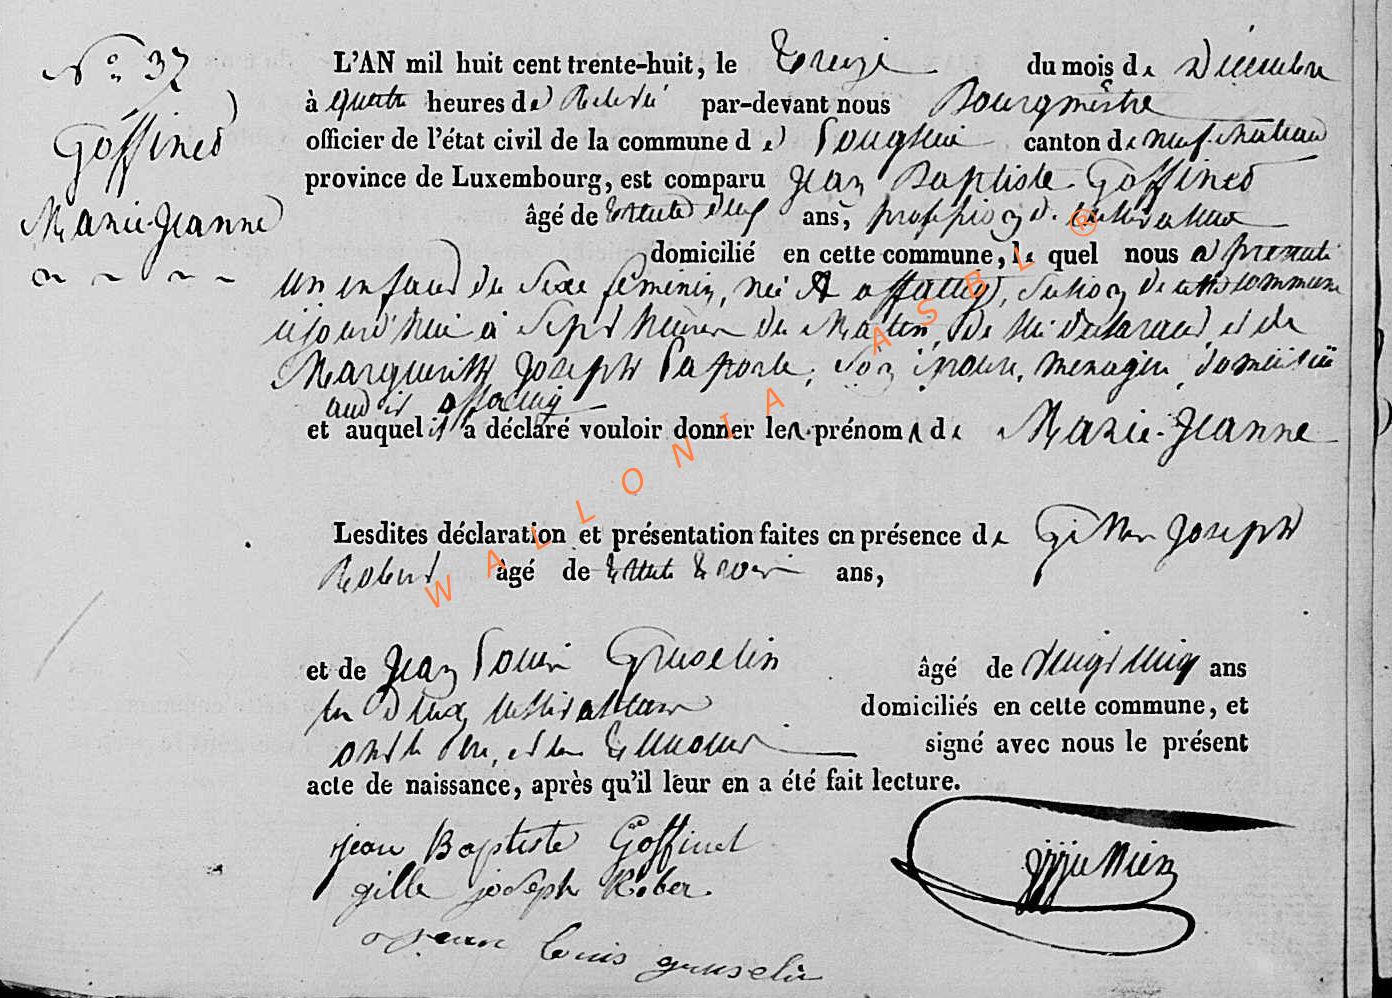 N° 37
Goffinet
Marie-Jeanne
L'AN mil huit cent trente-huit, le Treize du mois de Décembre
à quatre heures de Relevée par-devant nous Bourgmestre
officier de l'état civil de la commune de Longlier canton de neufchateau
province de Luxembourg, est comparu Jean Baptiste Goffinet
âgé de trente neuf ans, profession de cultivateur
domicilié en cette commune, le quel nous a presenté
un enfant du Sexe feminin, née à offaing, Section de cette commune
ajourd'hui à Sept heures du Matin, de lui declarant, et de
Marguerite Joseph Laporte, Son épouse, menagère, domiciliée
audit offaing
et auquel il a déclaré vouloir donner les prénoms de Marie-Jeanne
Lesdites déclaration et présentation faites en présence de Gille Joseph
Robert âgé de trente trois ans,
et de Jean Louis Gruselin âgé de vingt cinq ans
les deux cultivateurs domiciliés en cette commune, et
ont le père, et les temoins signé avec nous le présent
acte de naissance, après qu'il leur en a été fait lecture.
jean Baptiste Goffinet
gille joseph Rober
jean louis gruselin
WALLONIA ASBL ®